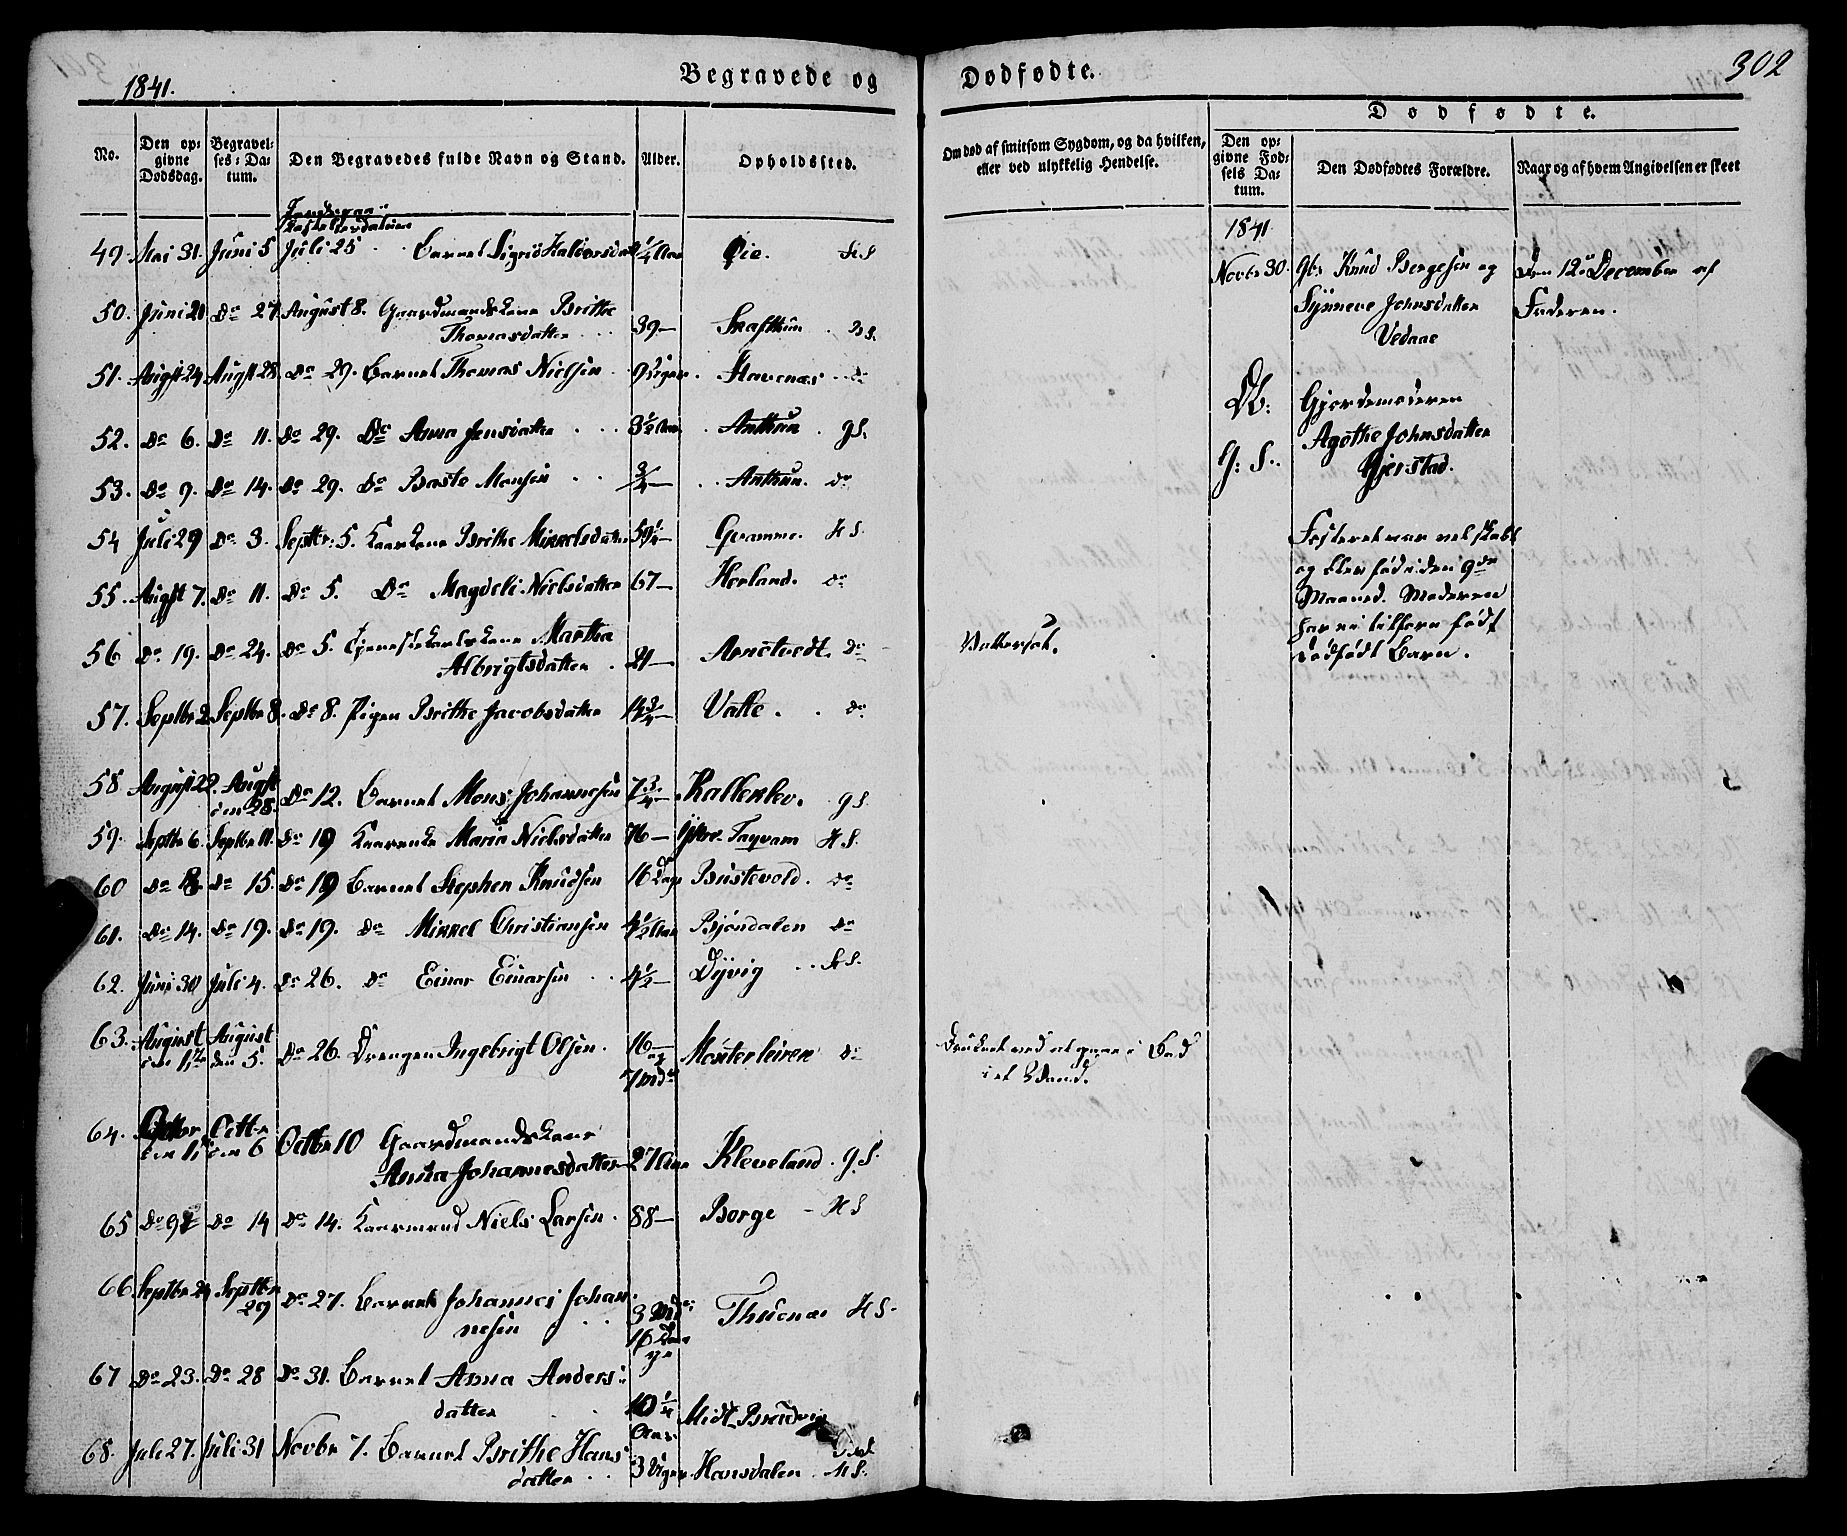 1841.
Begravede og
No.
Den op-
givne
Dødsdag.
Begravel-
ses-Da-
tum.
Den Begravedes fulde Navn og Stand.
Alder.
Opholdssted.
49. Mai 31. Juni 5 Juli 25 Barnet Sigrid Halvorsdat 2 1/4 Aar Øie.
50. Juni 21 Do 27 August 8. Gaardmandskone Brithe
Thomasdatter 39
51. Augst 24 Augst 28. Do 29. Barnet Thomas Nielsen 9 Uger Havenæs do
52. Do 6. Do 11. Do 29. Do Anna Jensdatter 3 1/2 Aar Anthun. G.S.
53. Do 9. Do 14. Do 29. Do Baste Monsen 3/4 Anthun. do
54 Juli 29 Do 3. Septbr. 5. Kaarkone Brithe Mikkelsdatter Gramme. H S.
55. Augst 7. Do 11. Do 5. Do Magdeli Nielsdatter 67 Herland. do
56 Do 19. Do 24. Do 5. Tjenestekarlskone Martha
Albrigtsdatter Arnetvedt. do Vattersot.
57. Septbr 2 Septbr 8. Do 8. Pigen Brithe Jacobsdatter 14 3/4 Valle. do
58. August 22. Augst
den 28. Do 12. Barnet Mons Johannesen 7 3/4 Kalleklev. G S.
59. Septbr 6. Septbr 11. Do 19 Kaarenke Maria Nielsdatter 76 H S.
60 Do 15. Do 19 Barnet Stephen Knudsen 16 Dage Bustevold. do
61. Do 14. Do 19. Do 19. Do Mikkel Christiansen 4 1/2 Aar Bjøndalen do
62. Juni 30 Juli 4. Do 26. Do Einar Einarsen 4 1/2 Dyvig
63. August August
den 5. Do 26. Drengen Ingebrigt Olsen. 16
og
7 Mdr Monterleiren do
Druknet ved at gaae i Bad
i et Vand.
64. Octbr
den 6 Octbr 10 Gaardmandskone
Anna Johannesdatter 27 Aar Kleveland. G.S.
65 Do Do 14 Do 14. Kaarmand Niels Larsen. 88 Borge H S
66. Septbr 24 Septbr
29 Do 27. Barnet Johannes Johan-
nesen 3 Mdr
16 Da-
ge Thuenæs H S.
67 Do 23. Do 28 Do 31. Barnet Anna Anders-
datter 10 1/4
Aar Midt-Brudvig
68. Juli 27. Juli 31 Novbr 7. Barnet Brithe Hans-
datter 3 Uger Hansdalen. H S.
Dødfødte.
302
Om død af smitsom Sygdom, og da hvilken,
eller ved ulykkelig Hendelse.
Dødfødte.
Den op-
givne Fød-
sels Da-
tum.
Den Dødfødtes Forældre.
Naar og af hvem Angivelsen er skeet
1841
Novbr 30. Gbr Knud Børgesen og Den 12te December af
Synneve Johnsdatter Faderen.
Vedaae
Db: Gjordemoderen
Agathe Johnsdatter
G: S. Gjerstad.
Fosteret var vel skabt
og blev født i den 9de
Maaned. Moderen
har ei tilforn født
dødfødt Barn.